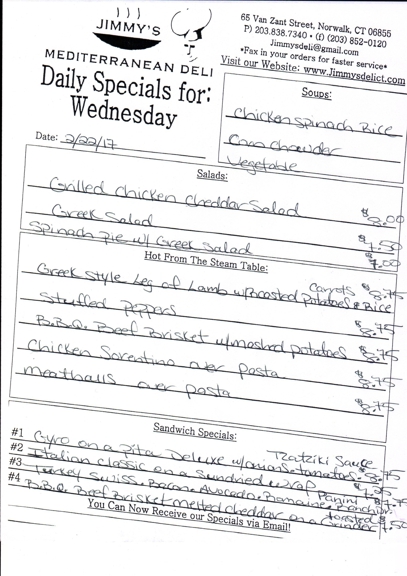 JIMMY'S
MEDITERRANEAN DELI
65 Van Zant Street, Norwalk, CT 06855
P) 203.838.7340 • (f) (203) 852-0120
Jimmysdeli@gmail.com
*Fax in your orders for faster service*
Visit our Website: www.Jimmysdelict.com
Daily Specials for:
Wednesday
Date: 2/22/17
Soups:
Chicken Spinach Rice
Corn Chowder
Vegetable
Salads:
Grilled Chicken Cheddar Salad $8.00
Greek Salad $7.50
Spinach Pie w/ Greek Salad $7.00
Hot From The Steam Table:
Greek Style Leg of Lamb w/Roasted Potatoes & Rice Carrots $8.75
Stuffed Peppers $8.75
B.B.Q. Beef Brisket w/mashed potatoes $8.75
Chicken Sorentino over Pasta $8.75
Meatballs over pasta $8.75
Sandwich Specials:
#1 Gyro on a Pita Deluxe w/onions & tomatoes Tzatziki Sauce
#2 Italian Classic on a Sundried wrap
#3 Turkey, Swiss, Bacon, Avocado, Panini
#4 B.B.Q. Beef Brisket melted cheddar on a toasted Grinder
You Can Now Receive our Specials via Email!